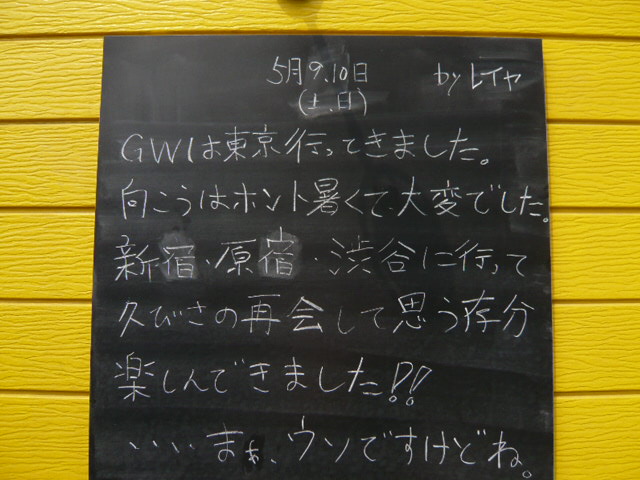 5月9.10日 by レイヤ
(土.日)
GWは東京行ってきました。
向こうはホント暑くて、大変でした。
新宿・原宿・渋谷に行って
久びさの再会して思う存分
楽しんできました!!
・・・まぁ、ウソですけどね。